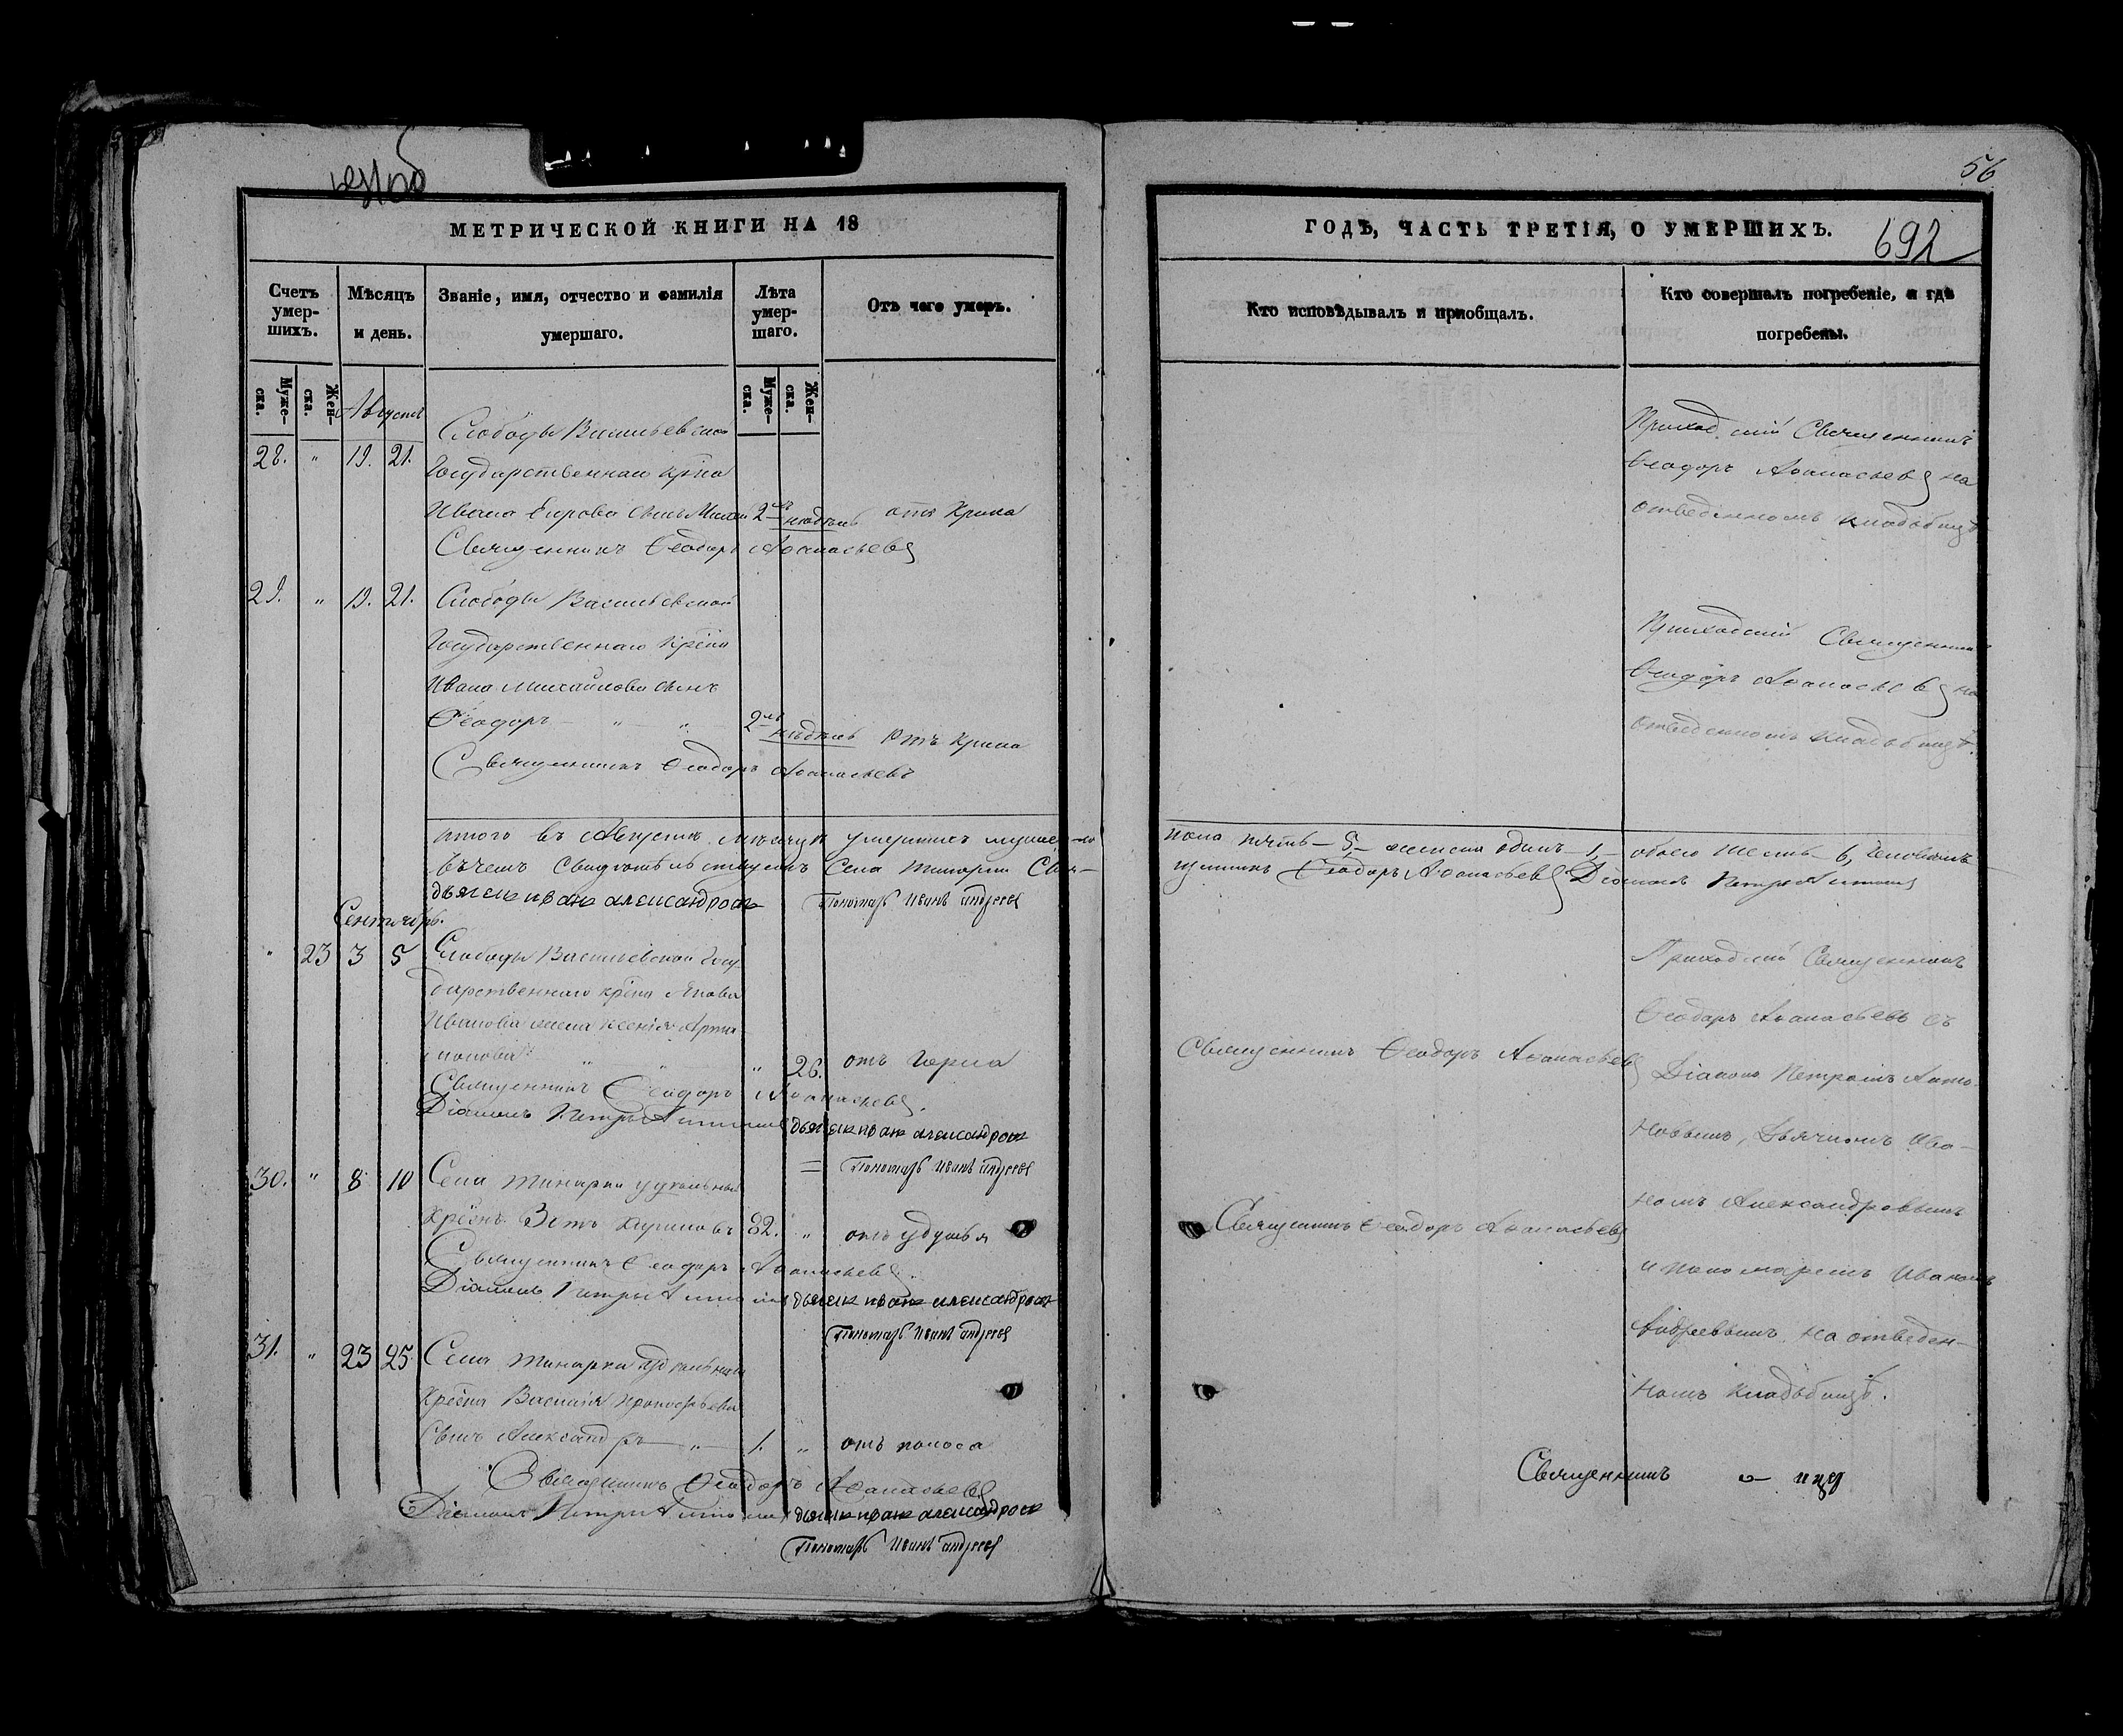 56
МЕТРИЧЕСКОЙ КНИГИ НА 18
Счетъ умер-шихъ.
Мѣсяцъ и день.
Званіе, имя, отчество и фамилія умершаго.
Лѣта умер-шаго.
Отъ чего умеръ.
Муже-ска.
Жен-ска.
Муже-ска.
Жен-ска.
Августъ
28. " 19. 21. Слободы Васильевской
Государственнаго крѣна
Ивана Егорова сынъ 2 недѣль отъ крика
Священникъ Ѳеодоръ Аѳанасьевъ
29. " 19. 21. Слободы Васильевской
Государственнаго крѣна
Ивана Михайлова сынъ
Ѳеодоръ " " 2 недѣль отъ крика
Священникъ Ѳеодоръ Аѳанасьевъ
Итого въ Августѣ мѣсяцѣ умершихъ мужеска
въ чемъ свидѣтельствуемъ Села Тинарки Свя-
дьячекъ иванъ александровъ Пономарь Иванъ андреевъ
Сентябрь.
" 23 3 5 Слободы Васильевской Госу-
дарственнаго крѣна Якова
Иванова жена Ксенія Арта-
монова " " 26. отъ горна
Священникъ Ѳеодоръ Аѳанасьевъ.
Діаконъ Петръ дьячекъ иванъ александровъ
= Пономарь Иванъ андреевъ
30. " 8 10 Села Тинарки удѣльный
крѣнъ 82. " отъ удушья
Священникъ Ѳеодоръ Аѳанасьевъ.
Діаконъ Петръ дьячекъ иванъ александровъ
Пономарь Иванъ андреевъ
31. " 23 25 Села Тинарки удѣльнаго
крѣна Василія Прокофьева
сынъ Александръ " 1. " отъ поноса
Священникъ Ѳеодоръ Аѳанасьевъ
Діаконъ Петръ дьячекъ иванъ александровъ
Пономарь Иванъ андреевъ
ГОДЪ, ЧАСТЬ ТРЕТІЯ, О УМЕРШИХЪ.
692
Кто исповѣдывалъ и пріобщалъ.
Кто совершалъ погребеніе, и гдѣ погребены.
Приходскій Священникъ
Ѳеодоръ Аѳанасьевъ на
отведенномъ кладбищѣ
Приходскій Священникъ
Ѳеодоръ Аѳанасьевъ на
отведенномъ кладбищѣ.
пола пять 5, женска одинъ 1, обоего шесть 6, человѣкъ
щенникъ Ѳеодоръ Аѳанасьевъ Діаконъ Петръ
Приходскій Священникъ
Ѳеодоръ Аѳанасьевъ съ
Священникъ Ѳеодоръ Аѳанасьевъ
Діакономъ Петромъ Анто-
новымъ, Дьячкомъ Ива-
номъ Александровымъ
Священникъ Ѳеодоръ Аѳанасьевъ
и пономаремъ Иваномъ
Андреевымъ на отведен-
номъ кладбищѣ.
Священникъ